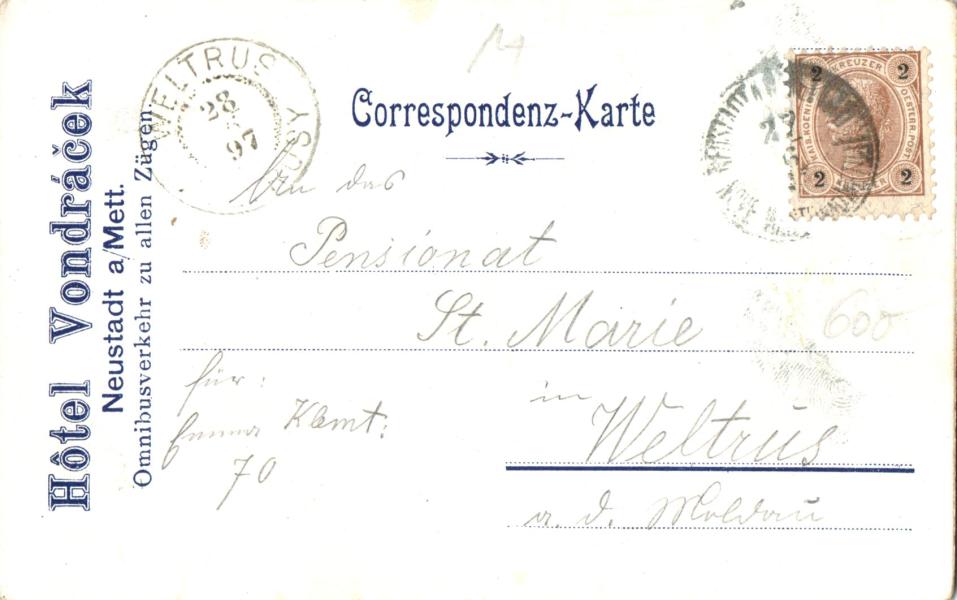 Hôtel Vondráček
Neustadt a/Mett.
Omnibusverkehr zu allen Zügen
WELTRUSY
28
97
Correspondenz-Karte
2 KREUZER 2
2 2
An das
Pensionat
St. Marie
in Weltrus
a. d. Moldau
für:
Emma Klamt:
70
600